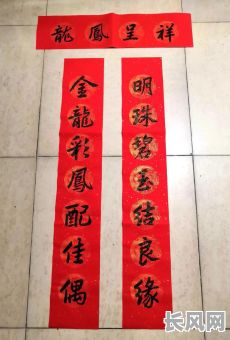 龍鳳呈祥
明珠碧玉結良緣
金龍彩鳳配佳偶
长风网